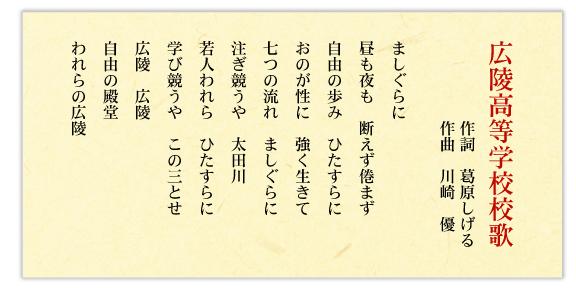 広陵高等学校校歌
作詞　葛原しげる
作曲　川崎　優
ましぐらに
昼も夜も　断えず倦まず
自由の歩み　ひたすらに
おのが性に　強く生きて
七つの流れ　ましぐらに
注ぎ競うや　太田川
若人われら　ひたすらに
学び競うや　この三とせ
広陵　広陵
自由の殿堂
われらの広陵